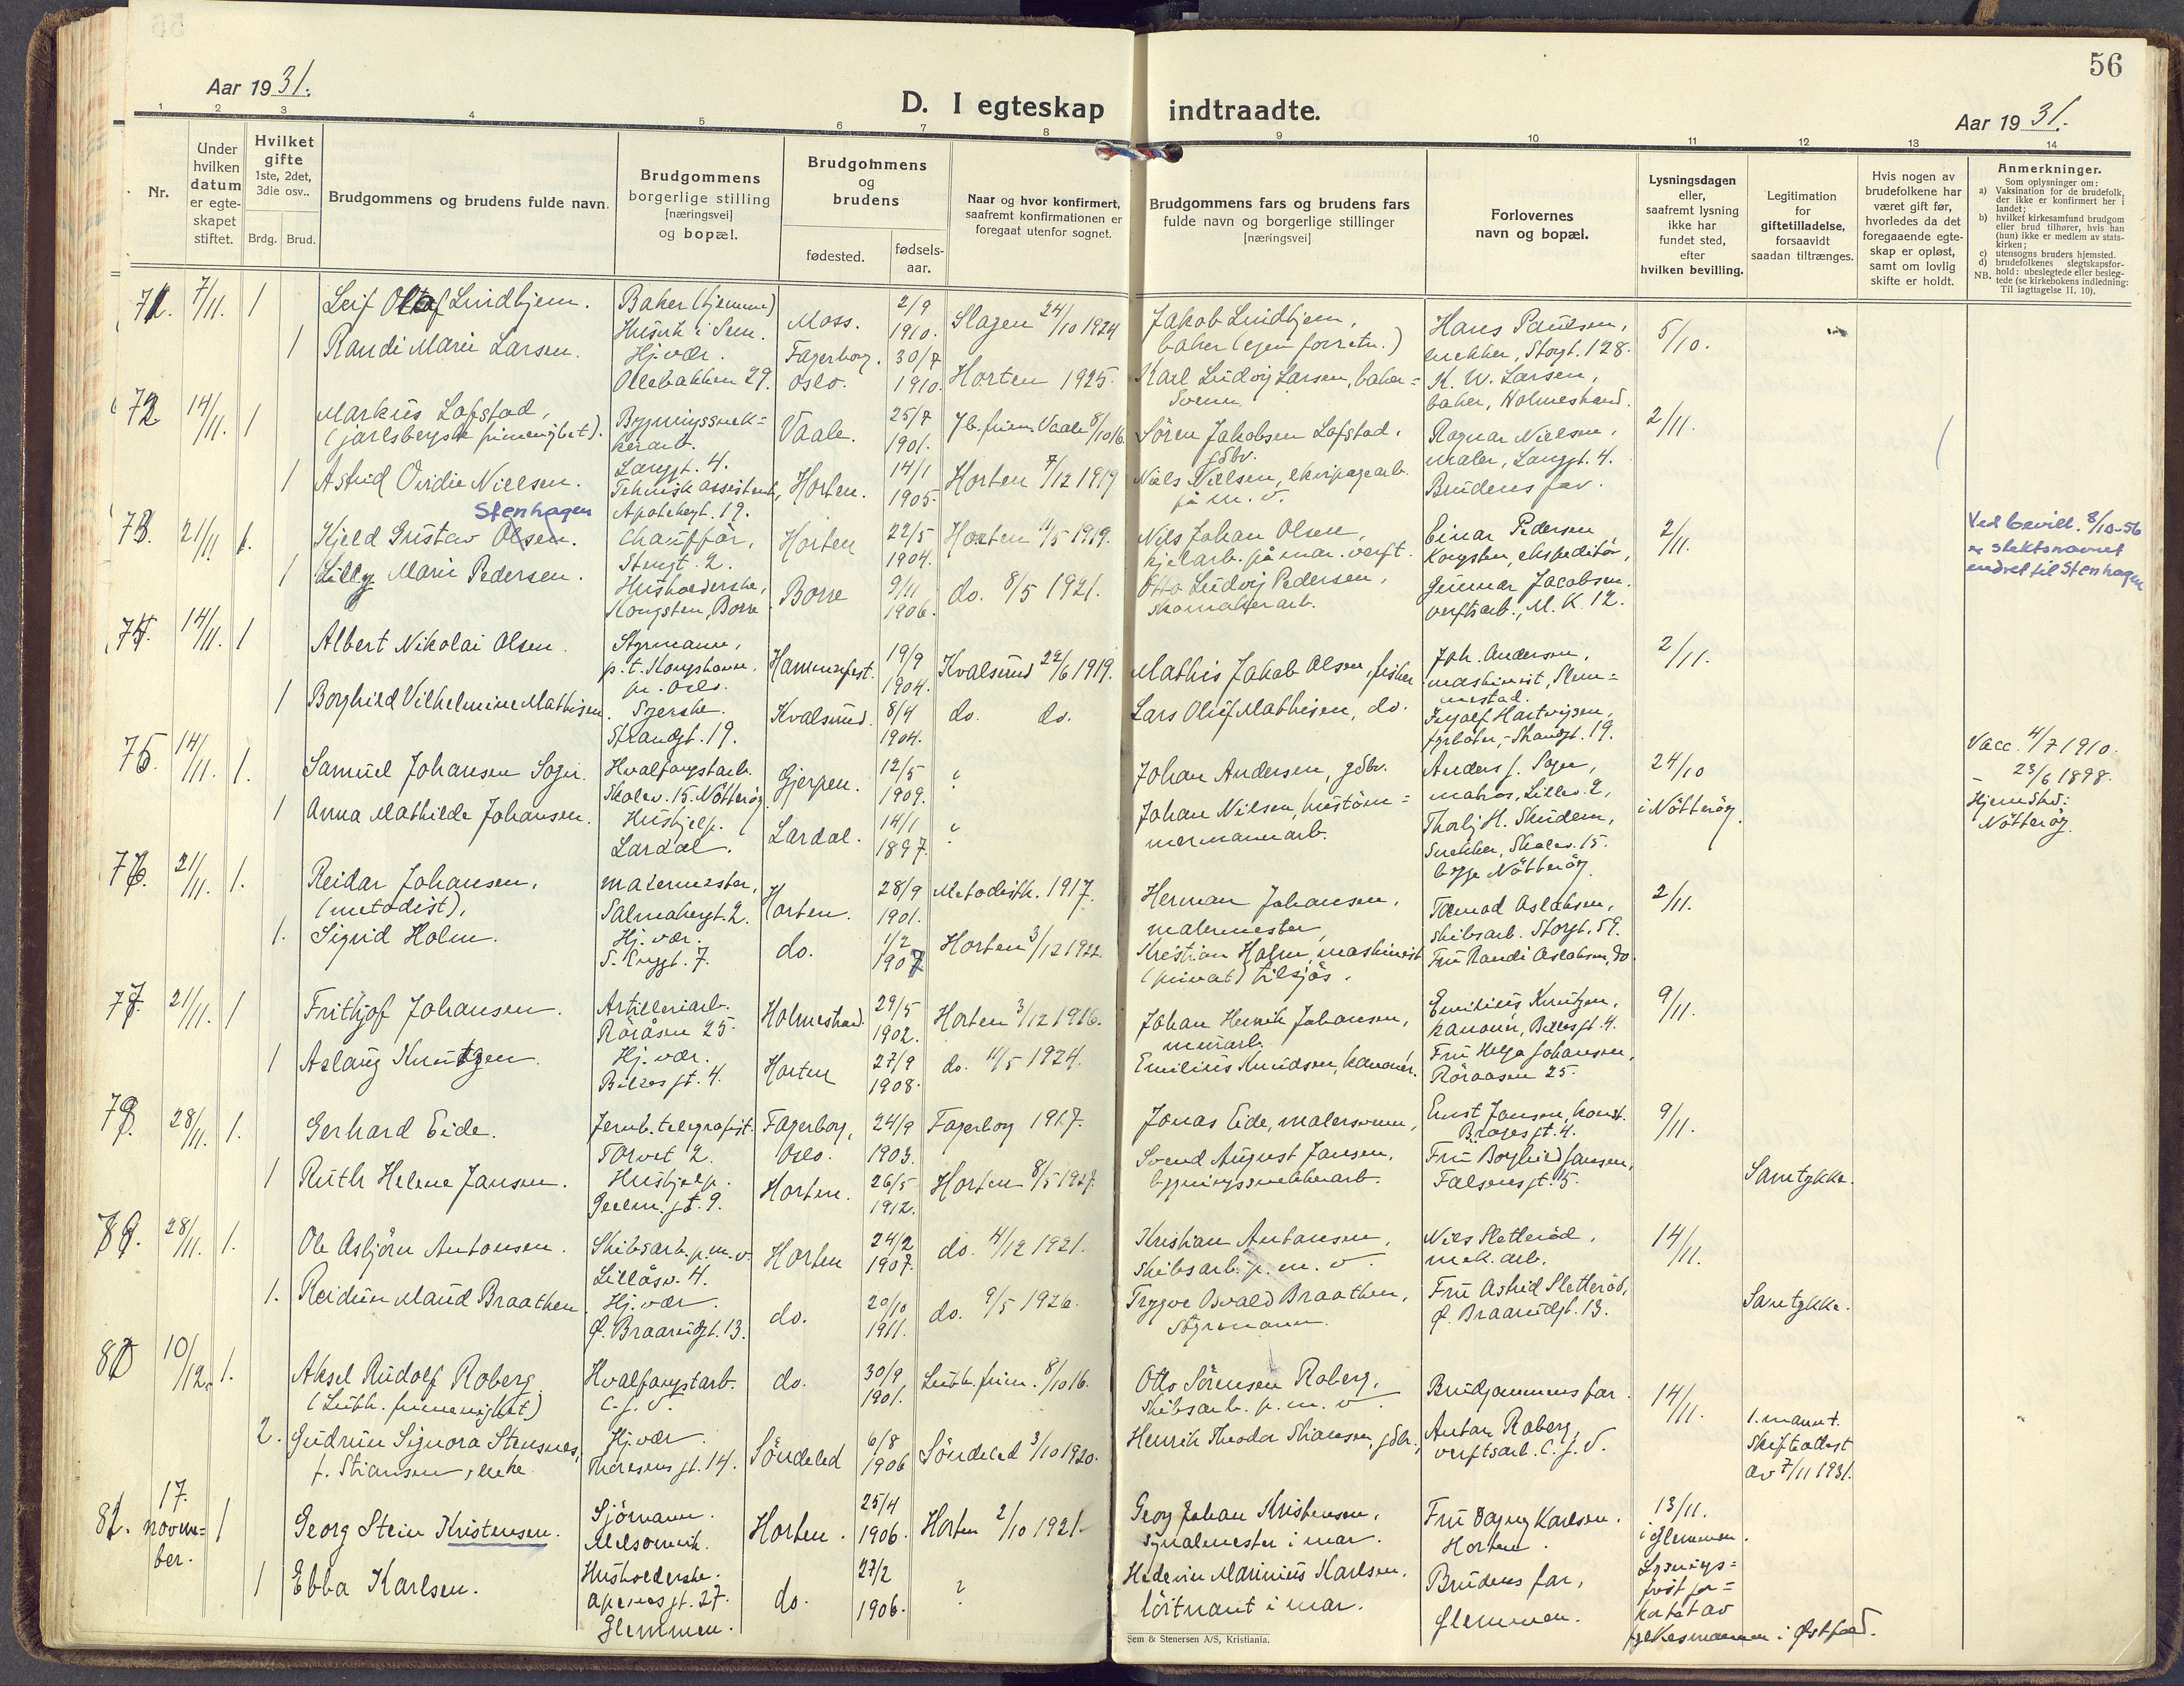 56
Aar 1931.
D. I egteskap indtraadte.
Aar 1931.
1 2 3 4 5 6 7 8 9 10 11 12 13 14
Nr.
Under hvilken datum er egteskapet stiftet.
Hvilket gifte 1ste, 2det, 3die osv..
Brdg. Brud.
Brudgommens og brudens fulde navn.
Brudgommens borgerlige stilling [næringsvei] og bopæl.
Brudgommens og brudens
fødested. fødselsaar.
Naar og hvor konfirmert, saafremt konfirmationen er foregaat utenfor sognet.
Brudgommens fars og brudens fars fulde navn og borgerlige stillinger [næringsvei]
Forlovernes navn og bopæl.
Lysningsdagen eller, saafremt lysning ikke har fundet sted, efter hvilken bevilling.
Legitimation for giftetilladelse, forsaavidt saadan tiltrænges.
Hvis nogen av brudefolkene har været gift før, hvorledes da det foregaaende egteskap er opløst, samt om lovlig skifte er holdt.
Anmerkninger.
Som oplysninger om:
a) Vaksination for de brudefolk, der ikke er konfirmert her i landet;
b) hvilket kirkesamfund brudgom eller brud tilhører, hvis han (hun) ikke er medlem av statskirken;
c) utensogns bruders hjemsted.
d) brudefolkenes slegtskapsforhold: ubeslegtede eller beslegtede (se kirkebokens indledning: Til iagttagelse II. 10).
NB.
71. 7/11. 1 Leif Olaf Lindhjem. Baker (hjemme) Husvik i Sem. Moss. 2/9 1910. Slagen 24/10 1924 Jakob Lindhjem, baker (egen forretn.) Hans Paulsen, snekker, Storgt. 128. 5/10.
1 Randi Marie Larsen. Hj. vær. Ollebakken 29. Fagerborg. Oslo. 30/7 1910. Horten 1925. Karl Ludvig Larsen, bakersvenn K. W. Larsen, baker, Holmestrand.
72 14/11. 1 Markus Lofstad, (jarlsbergske frimenighet). Bygningssnekkerarb. Langgt. 4. Vaale. 25/7 1901. Jb. frim. Vaale 8/10 16 Søren Jakobsen Lofstad, gdbr. Ragnar Nielsen, maler, Langgt. 4. 2/11.
1 Astrid Ovidie Nielsen. Teknisk assistent, Apotekergt. 12. Horten. 14/1 1905. Horten 7/12 1919 Niels Nielsen, ekvipagearb. på m. v. Brudens far.
73. 21/11 1. Kjeld Gustav Olsen. Stenhagen Chauffør, Stengt. 2. Horten 22/5 1904. Horten 11/5 1919. Nils Johan Olsen, kjelarb. på mar. verft. Einar Pedersen Kongsten, ekspeditør, 2/11. Ved bevill. 8/10-56 er slektsnavnet endret til Stenhagen
1 Lilly Marie Pedersen. Husholderske, Kongsten, Borre Borre 9/11 1906. do. 8/5 1921. Otto Ludvig Pedersen, skomakerarb. Gunnar Jacobsen. verftsarb., M. K. 12.
74. 14/11. 1 Albert Nikolai Olsen. Styrmann, p. t. Kongshavn, pr. Oslo. Hammerfest. 19/9 1904. Kvalsund 29/6 1919. Mathis Jakob Olsen, fisker Joh. Andersen, maskinist, Slemmestad. 2/11.
1 Borghild Vilhelmine Mathisen. Syerske. Strandgt. 19. Kvalsund. 8/4 1904. do. do. Lars Oluf Mathisen, do. Ingolf Hartvigsen, fyrbøter, Strandgt. 19.
75. 14/11. 1. Samuel Johansen Soger. Hvalfangstarb. Skolev. 15. Nøtterøy. Gjerpen. 12/5 1909. ? Johan Andersen, gdbr. Anders J. Soger, matros, Lillev. 2, 24/10 i Nøtterøy. Vacc. 4/7 1910.
1 Anna Mathilde Johansen. Hushjelp. Lardal. Lardal. 14/1 1897. ? Johan Nielsen, hustømmermannarb. Thorbj H. Skudem, Snekker, Skolev. 15. begge Nøtterøy. – 23/6 1898. Hjemsted: Nøtterøy.
76. 21/11. 1. Reidar Johansen, (metodist), malermester, Salmakergt. 2. Horten. 28/9 1901. Metodistk. 1917. Herman Johansen, malermester, Tormod Aslaksen, skibsarb. Storgt. 59. 2/11.
1. Sigrid Holm. Hj. vær. S. Kryggt. 7. do. 1/2 1907 Horten 3/12 1922. Kristian Holm, maskinist (privat) tilsjøs. Fru Randi Aslaksen, do.
77. 21/11. 1 Frithjof Johansen. Artilleriarb. Røråsen 25. Holmestrand. 29/5 1902. Horten 3/12 1916. Johan Henrik Johansen, murarb. Emilius Knutzen, kanonér, Bilxesgt. 4. 9/11.
1 Aslaug Knutzen. Hj. vær. Bilxesgt. 4. Horten 27/9 1908. do. 11/5 1924. Emilius Knudsen, kanonér. Fru Helga Johansen, Røraasen 25.
78. 28/11. 1. Gerhard Eide. Jernb. telegrafist. Torvet 2. Fagerborg, Oslo. 24/9 1903. Fagerborg 1917. Jonas Eide, malersvenn, Ernst Jansen, konst. Bragesgt. 4. 9/11.
1 Ruth Helene Jansen. Hushjelp. Geelm. gt. 9. Horten. 26/5 1912. Horten 8/5 1927. Svend August Jansen, bygningssnekkerarb. Fru Borghild Jansen, Falsensgt. 5. Samtykke.
79. 28/11. 1. Ole Asbjørn Antonsen. Skibsarb. p. m. v. Lillåsv. 4. Horten 24/2 1907. do. 4/12 1921. Kristian Antonsen, skibsarb. p. m. v. Nils Sletterød, mek. arb. 14/11.
1. Reidun Maud Braathen. Hj. vær. Ø. Braarudgt. 13. do. 20/10 1911. do. 9/5 1926. Trygve Osvald Braathen, Styrmann. Fru Astrid Sletterød, Ø. Braarudgt. 13. Samtykke.
80 10/12. 1. Aksel Rudolf Roberg. (Luth. frimenighet) Hvalfangstarb. C. J. V. do. 30/9 1901. Luth. frim. 8/10 16. Otto Sørensen Roberg, skibsarb. p. m. v. Brudgommens far. 14/11.
2. Gudrun Signora Stensnes, f. Stiansen, enke. Hj. vær. Thoresens gt. 14. Søndeled 6/8 1906 Søndeled 3/10 1920. Henrik Theodor Stiansen, gdbr., Anton Roberg, verftsarb. C. J. V. 1. mann t. Skifteattest av 7/11 1931.
81. 17. november. 1 Georg Stein Kristensen. Sjømann. Melsomvik. Horten. 25/4 1906. Horten 2/10 1921. Georg Johan Kristensen, signalmester i mar. Fru Dagny Karlsen. Horten. 13/11. i Glemmen.
1 Ebba Karlsen. Husholderske. Apenesgt. 27. Glemmen. do. 27/2 1906. ? Marinius Karlsen, løitnant i mar. Brudens far, Glemmen. Lysningsfrist forkortet av fylkesmannen i Østfold.
Sem & Stenersen A/S, Kristiania.